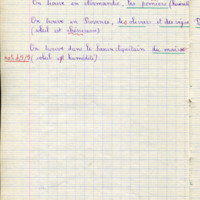 On trouve en Normandie, les pommiers (
On trouve en Provence, les oliviers et des vignes
(soleil et
On trouve dans le bassin Aquitain du maïs
(soleil et humidité)